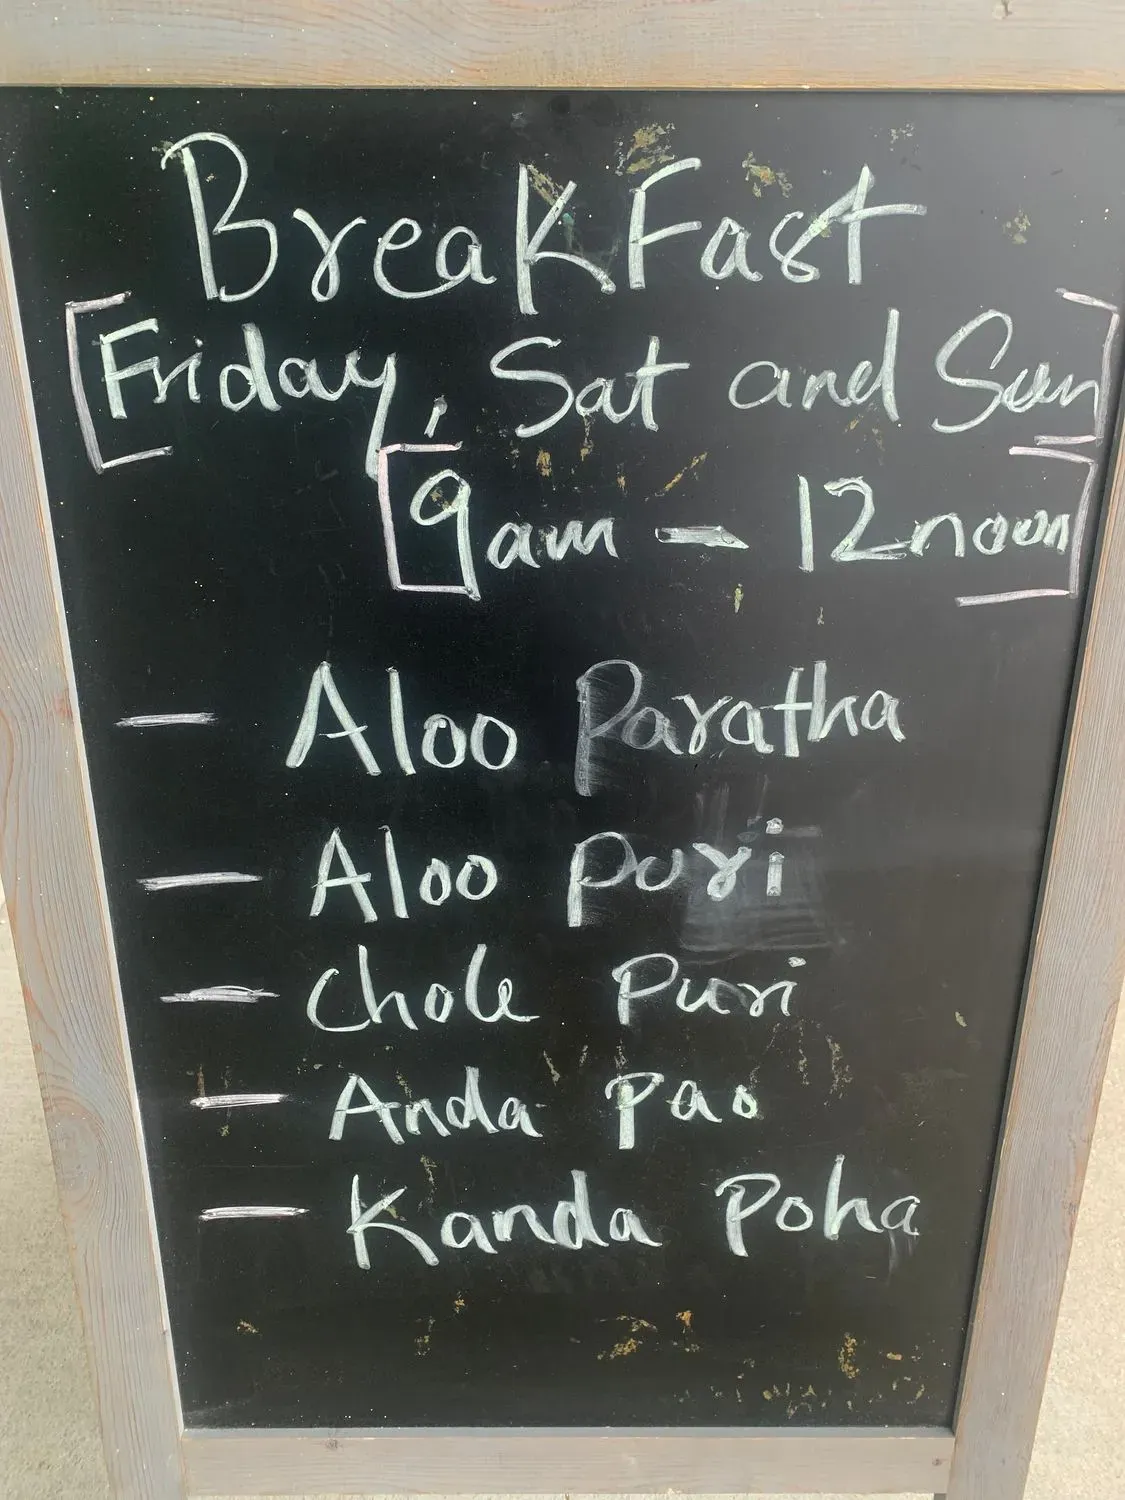 BreakFast
[Friday, Sat and Sun]
[9am - 12noon]
- Aloo Paratha
- Aloo puri
- Chole Puri
- Anda Pao
- Kanda Poha